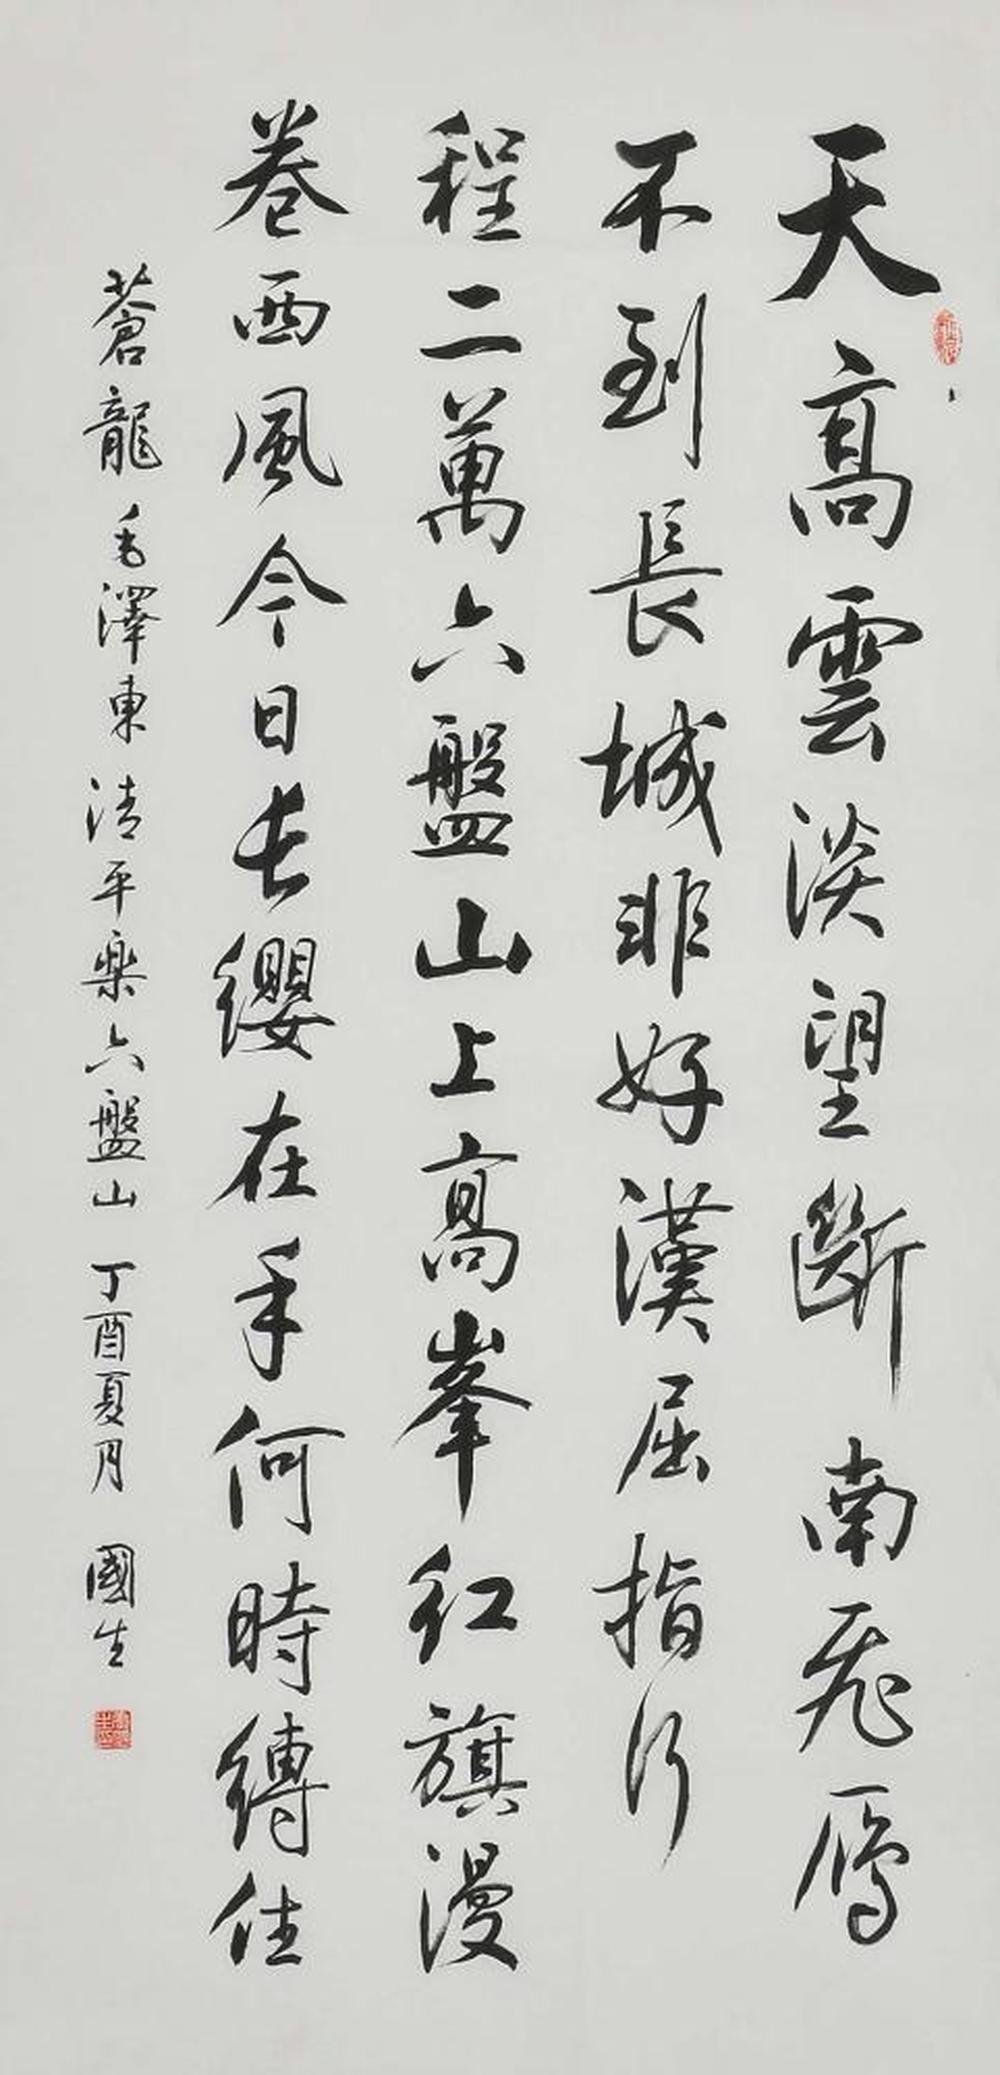 天高雲淡望斷南飛雁
不到長城非好漢屈指行
程二萬六盤山上高峯紅旗漫
卷西風今日長纓在手何時縛住
蒼龍 毛澤東清平樂六盤山 丁酉夏月 國生